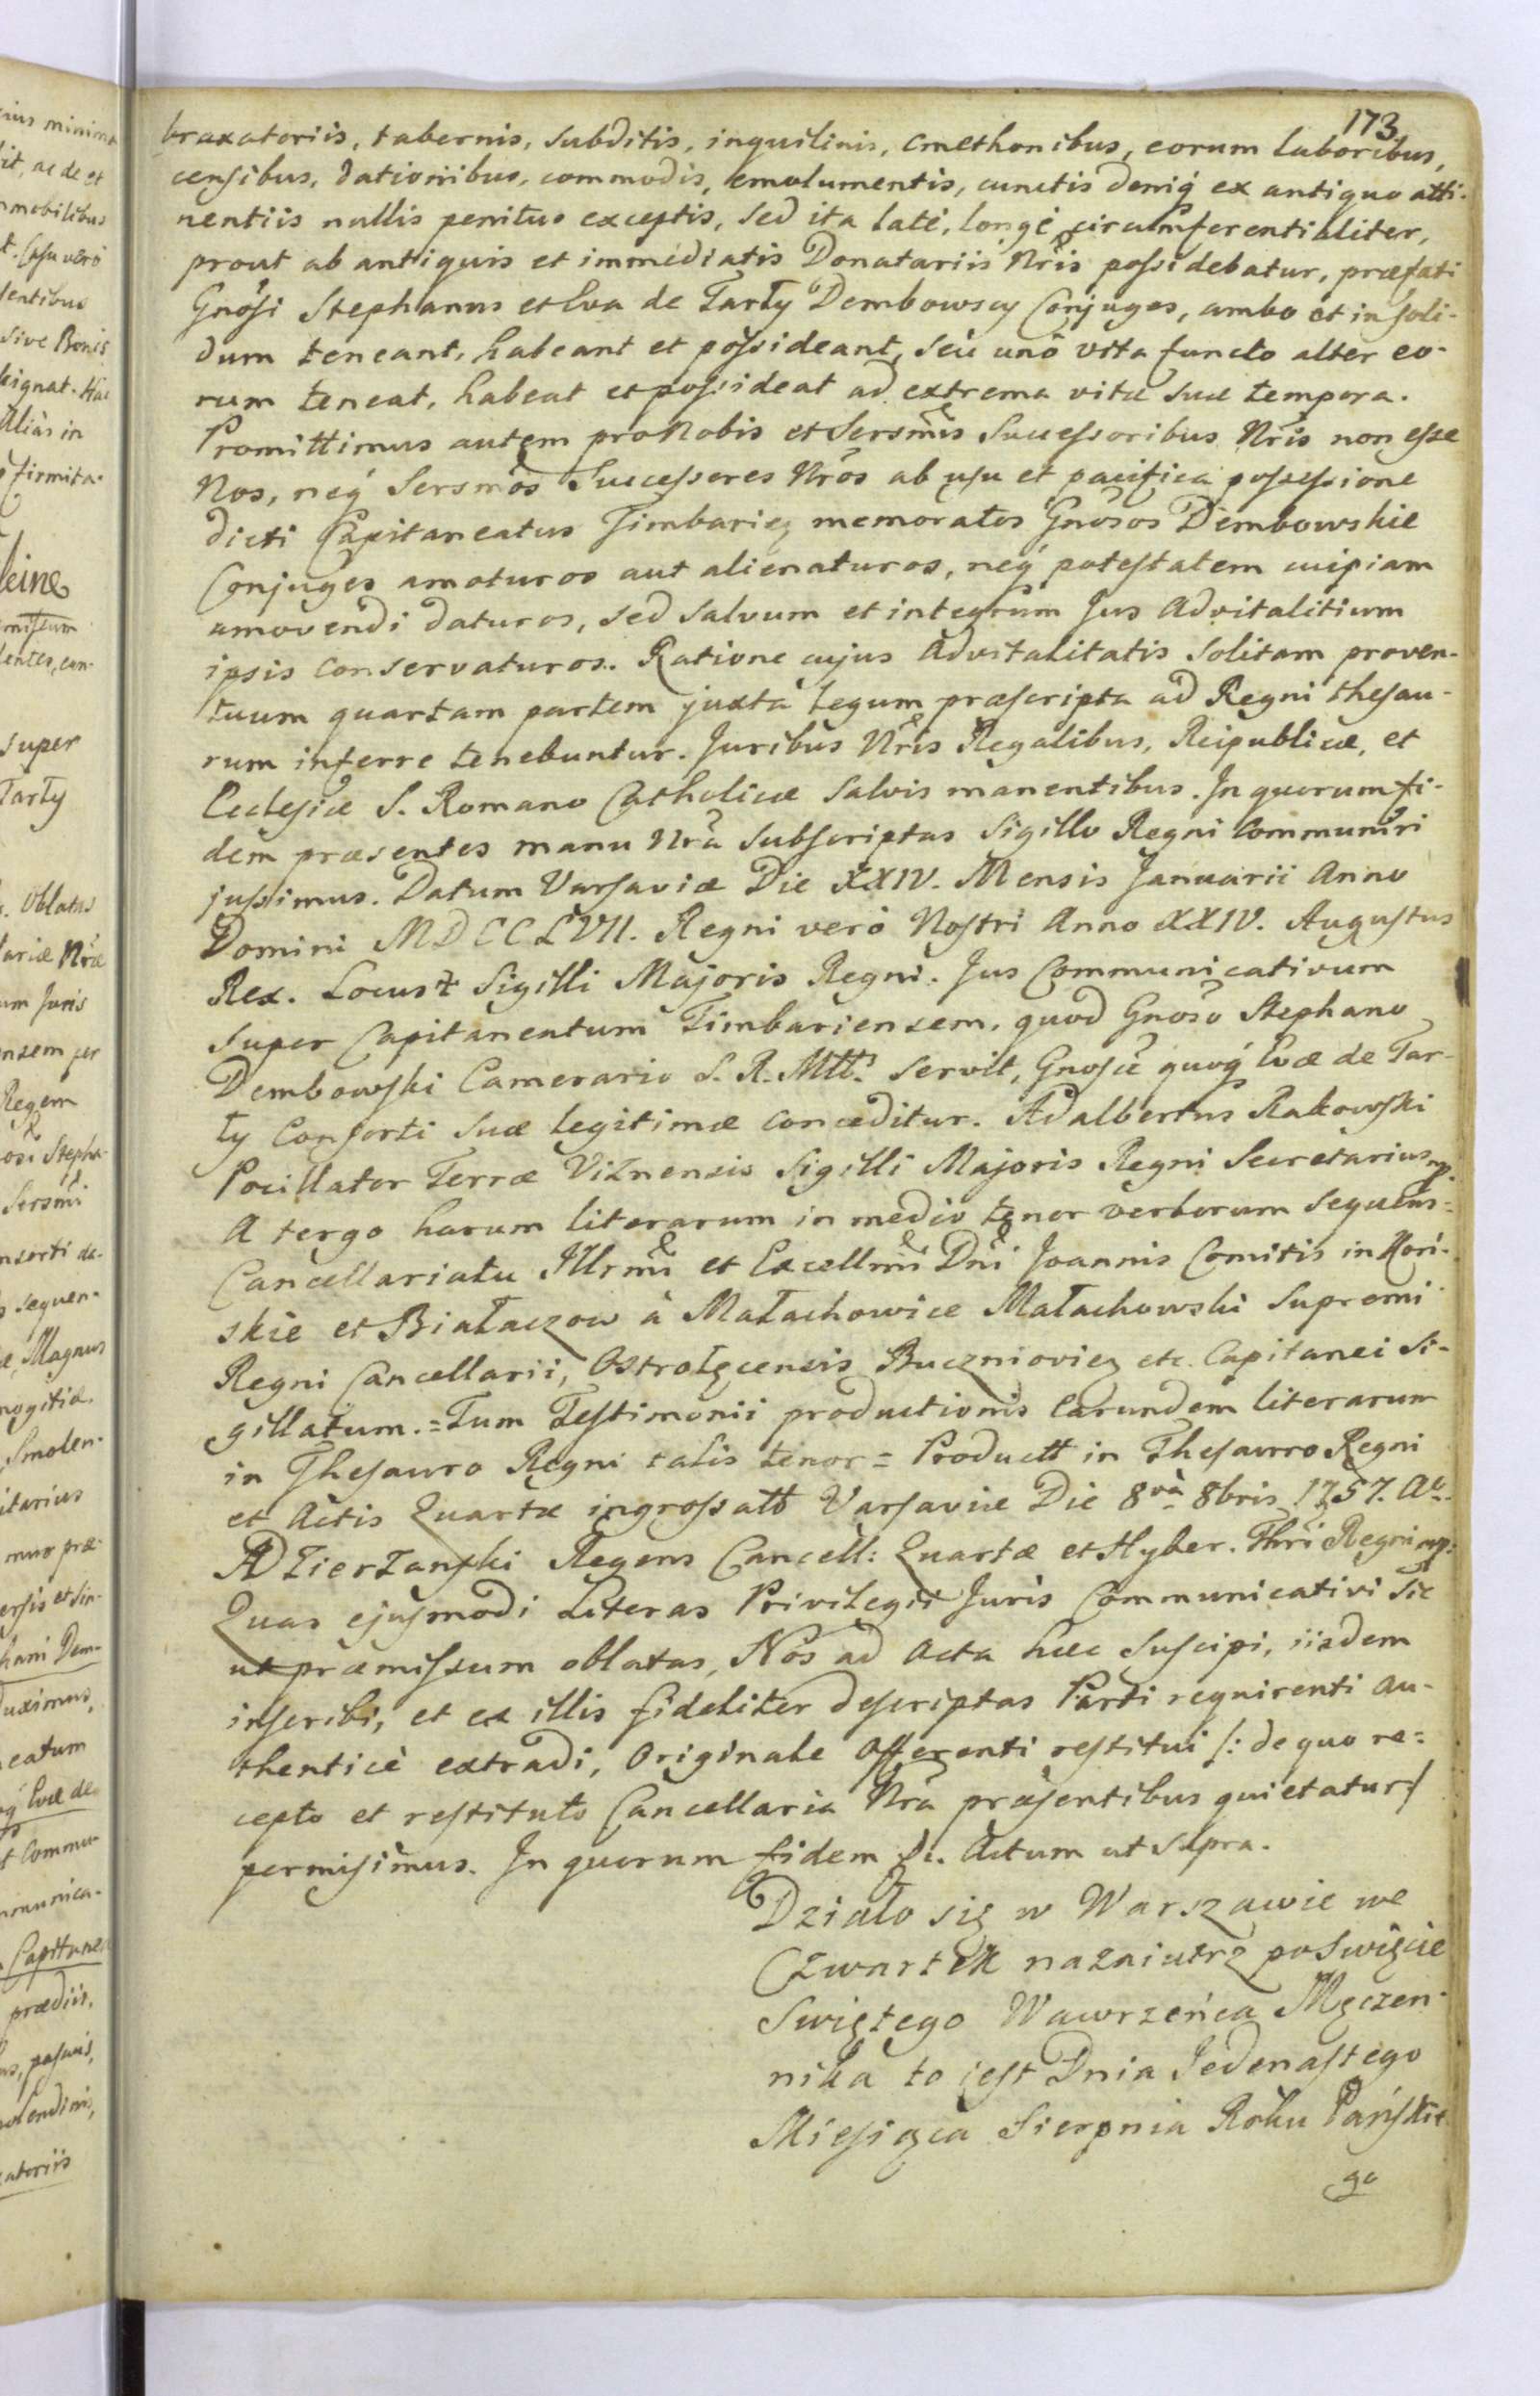 173
braxatoriis, tabernis, subditis, inquilinis, cmethonibus, eorum laboribus,
censibus, dationibus, commodis, emolumentis, cunctis deniq́ ex antiquo atti-
nentiis nullis penitus exceptis, sed ita latè, longè, circumferentialiter,
prout ab antiquis et immediatis Donatariis Nris possidebatur, præfati
Gnosi Stephanus et Eva de Tarły Dembowscy Conjuges, ambo et in soli-
dum teneant, habeant et possideant, seù unô vita functo alter eo-
rum teneat, habeat et possideat ad extrema vitæ suæ tempora.
Promittimus autem pro Nobis et Sersmis Successoribus Nris non esse
Nos, neq́ Sersmos Successeres Nros ab usu et pacifica possessione
dicti Capitaneatus Timbariez memoratos Gnosos Dembowskie
Conjuges amoturos aut alienaturos, neq́ potestatem cuipiam
amovendi daturos, sed salvum et integrum Jus Advitalitium
ipsis conservaturos. Ratione cujus Advitalitatis solitam proven-
tuum quartam partem juxta legum præscripta ad Regni thesau-
rum inferre tenebuntur. Juribus Nris Regalibus, Reipublicæ, et
Ecclesiæ S. Romano Catholicæ salvis manentibus. In quorum fi-
dem præsentes manu Nra subscriptas Sigillo Regni Communiri
jussimus. Datum Varsaviæ Die XXIV. Mensis Januarii Anno
Domini MDCCLVII. Regni verò Nostri Anno XXIV. Augustus
Rex. Locus Sigilli Majoris Regni. Jus Communicativum
super Capitaneatum Timbariensem, quod Gnoso Stephano
Dembowski Camerario S. R. Mtti servit, Gnosæ quoq́ Evæ de Tar-
ły Consorti suæ legitimæ conceditur. Adalbertus Rakowski
Pocillator Terræ Viznensis Sigilli Majoris Regni Secretarius mp.
A tergo harum literarum in medio tenor verborum sequens =
Cancellariatu Illrmi et Excellmi Dni Joannis Comitis in Kori-
skie et Białaczow à Małachowice Małachowski Supremi
Regni Cancellarii, Ostrołęcensis Bucznioviez etc. Capitanei Si-
gillatum. = Tum Testimonii productionis Earundem literarum
in Thesauro Regni talis tenor = Productt in Thesaurro Regni
et Actis Quartæ ingrossatt Varsaviæ Die 8va 8bris 1757. Ao
ADzierzanski Regens Cancell: Quartæ et Hyber. Thri Regni mp:
Quas ejusmodi Literas Privilegii Juris Communicativi Sic
ut præmissum oblatas, Nos ad Acta hæc suscipi, iisdem
inscribi, et ex illis fideliter descriptas Parti requirenti au-
thenticè extradi, Originale Offerenti restitui /: de quo re-
cepto et restituto Cancellaria Nra præsentibus quietatur:/
permisimus. In quorum fidem &c. Actum ut supra.
Działo się w Warszawie we
Czwartek nazaiutrz po Swięcie
Swiętego Wawrzeńca Męczen-
nika to jest Dnia Jedenastego
Miesiąca Sierpnia Roku Pańskie
go